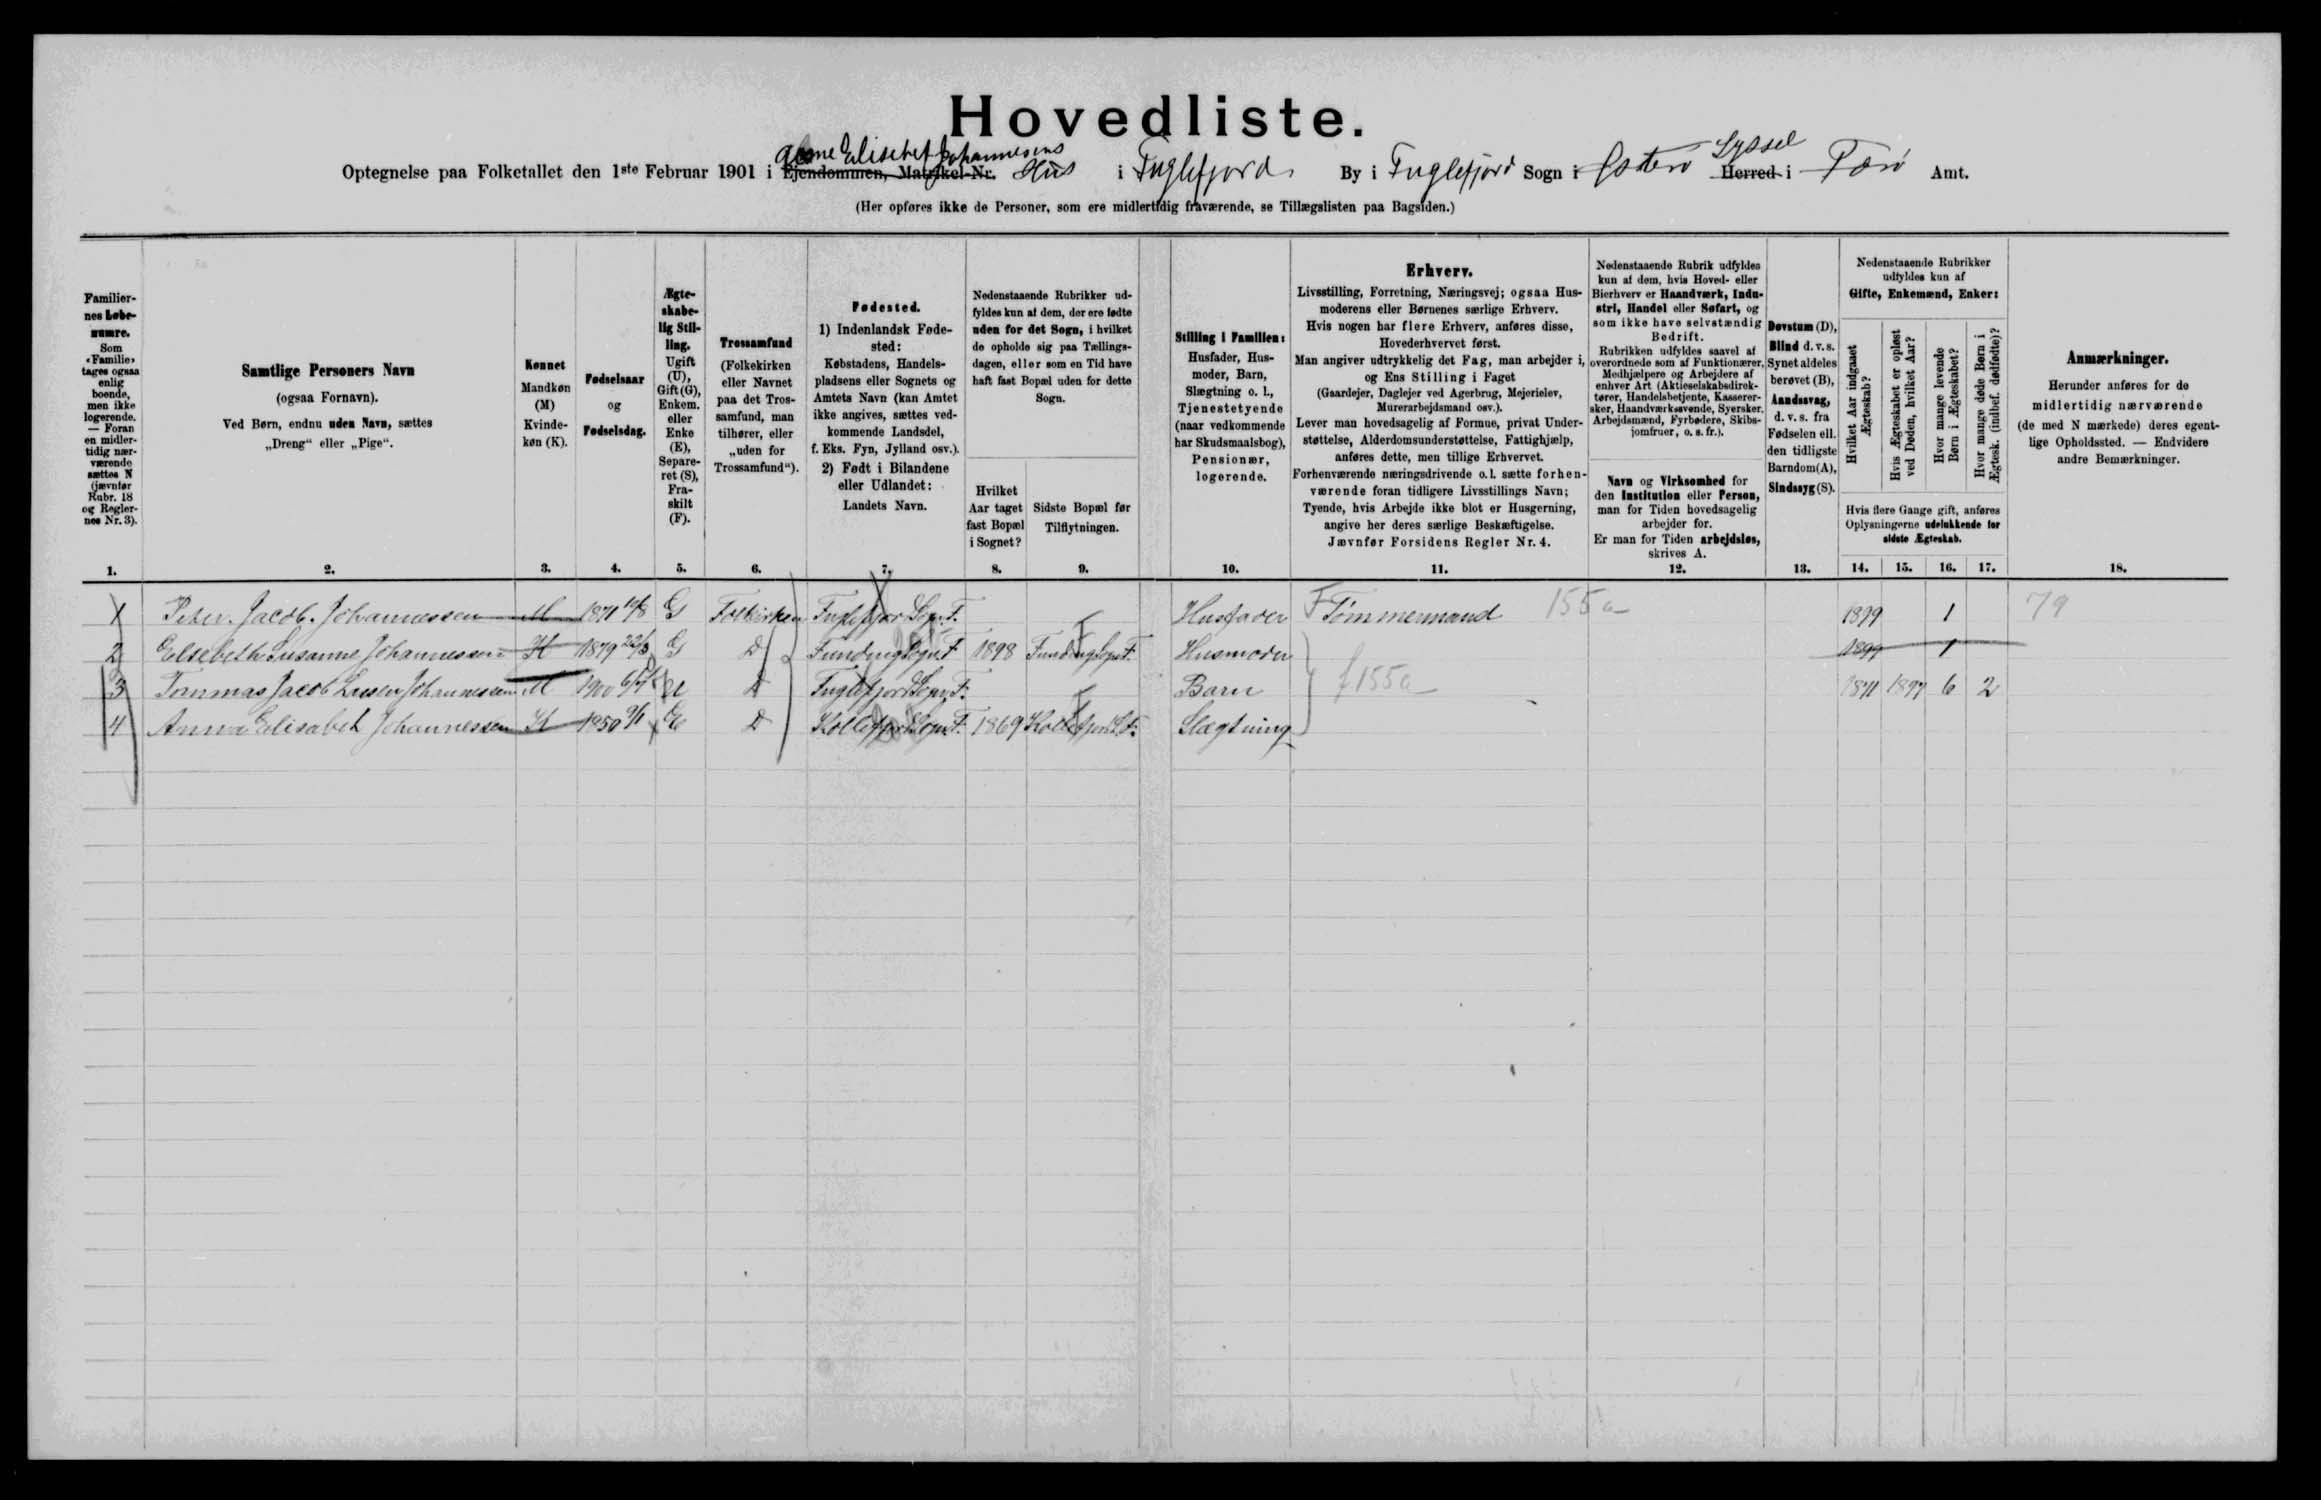 Hovedliste.
Anne Elisabet Johannesens
Optegnelse paa Folketallet den 1ste Februar 1901 i Ejendommen, Matrikel-Nr. Hus i Fuglefjord By i Fuglefjord Sogn i Østerø Herred i Færø Amt.
Syssel
(Her opføres ikke de Personer, som ere midlertidig fraværende, se Tillægslisten paa Bagsiden.)
Familier-
nes Løbe-
numre.
Som
«Familie»
tages ogsaa
enlig
boende,
men ikke
logerende.
— Foran
en midler-
tidig nær-
værende
sættes N
(jævnfør
Rubr. 18
og Regler-
nes Nr. 3).
1.
Samtlige Personers Navn
(ogsaa Fornavn).
Ved Børn, endnu uden Navn, sættes
„Dreng“ eller „Pige“.
2.
Kønnet
Mandkøn
(M)
Kvinde-
køn (K).
3.
Fødselsaar
og
Fødselsdag.
4.
Ægte-
skabe-
lig Stil-
ling.
Ugift
(U),
Gift (G),
Enkem.
eller
Enke
(E),
Separe-
ret (S),
Fra-
skilt
(F).
5.
Trossamfund
(Folkekirken
eller Navnet
paa det Tros-
samfund, man
tilhører, eller
„uden for
Trossamfund“).
6.
Fødested.
1) Indenlandsk Føde-
sted:
Købstadens, Handels-
pladsens eller Sognets og
Amtets Navn (kan Amtet
ikke angives, sættes ved-
kommende Landsdel,
f. Eks. Fyn, Jylland osv.).
2) Født i Bilandene
eller Udlandet:
Landets Navn.
7.
Nedenstaaende Rubrikker ud-
fyldes kun af dem, der ere fødte
uden for det Sogn, i hvilket
de opholde sig paa Tællings-
dagen, eller som en Tid have
haft fast Bopæl uden for dette
Sogn.
Hvilket
Aar taget
fast Bopæl
i Sognet?
8.
Sidste Bopæl før
Tilflytningen.
9.
Stilling i Familien:
Husfader, Hus-
moder, Barn,
Slægtning o. l.,
Tjenestetyende
(naar vedkommende
har Skudsmaalsbog),
Pensionær,
logerende.
10.
Erhverv.
Livsstilling, Forretning, Næringsvej; ogsaa Hus-
moderens eller Børnenes særlige Erhverv.
Hvis nogen har flere Erhverv, anføres disse,
Hovederhvervet først.
Man angiver udtrykkelig det Fag, man arbejder i,
og Ens Stilling i Faget
(Gaardejer, Daglejer ved Agerbrug, Mejerielev,
Murerarbejdsmand osv.).
Lever man hovedsagelig af Formue, privat Under-
støttelse, Alderdomsunderstøttelse, Fattighjælp,
anføres dette, men tillige Erhvervet.
Forhenværende næringsdrivende o. l. sætte forhen-
værende foran tidligere Livsstillings Navn;
Tyende, hvis Arbejde ikke blot er Husgerning,
angive her deres særlige Beskæftigelse.
Jævnfør Forsidens Regler Nr. 4.
11.
Nedenstaaende Rubrik udfyldes
kun af dem, hvis Hoved- eller
Bierhverv er Haandværk, Indu-
stri, Handel eller Søfart, og
som ikke have selvstændig
Bedrift.
Rubrikken udfyldes saavel af
overordnede som af Funktionærer,
Medhjælpere og Arbejdere af
enhver Art (Aktieselskabsdirek-
tører, Handelsbetjente, Kasserer-
sker, Haandværkssvende, Syersker,
Arbejdsmænd, Fyrbødere, Skibs-
jomfruer, o. s. fr.).
Navn og Virksomhed for
den Institution eller Person,
man for Tiden hovedsagelig
arbejder for.
Er man for Tiden arbejdsløs,
skrives A.
12.
Døvstum (D),
Blind d. v. s.
Synet aldeles
berøvet (B),
Aandssvag,
d. v. s. fra
Fødselen ell.
den tidligste
Barndom (A),
Sindssyg (S).
13.
Nedenstaaende Rubrikker
udfyldes kun af
Gifte, Enkemænd, Enker:
Hvilket Aar indgaaet
Ægteskab?
Hvis Ægteskabet er opløst
ved Døden, hvilket Aar?
Hvor mange levende
Børn i Ægteskabet?
Hvor mange døde Børn i
Ægtesk. (indbef. dødfødte)?
Hvis flere Gange gift, anføres
Oplysningerne udelukkende for
sidste Ægteskab.
14. 15. 16. 17.
Anmærkninger.
Herunder anføres for de
midlertidig nærværende
(de med N mærkede) deres egent-
lige Opholdssted. — Endvidere
andre Bemærkninger.
18.
1 Peter Jacob Johannessen M 1871 G Folkirken Fuglefjor Sogn F. Husfader F Tømmermand 155a 1899 1 79
2 Elsebeth Susanne Johannessen K 1879 22/3 G D Funding Sogn F 1898 Funding Sogn F. Husmoder 1899 1
3 Tommas Jacob Johannessen M 1900 U D Fuglefjord Sogn F. Barn f. 155a 1871 1897 6 2
4 Anna Elisabeth Johannessen K 1850 E D Kollefjord Sogn F. 1869 Kollefjord S. F. Slægtning